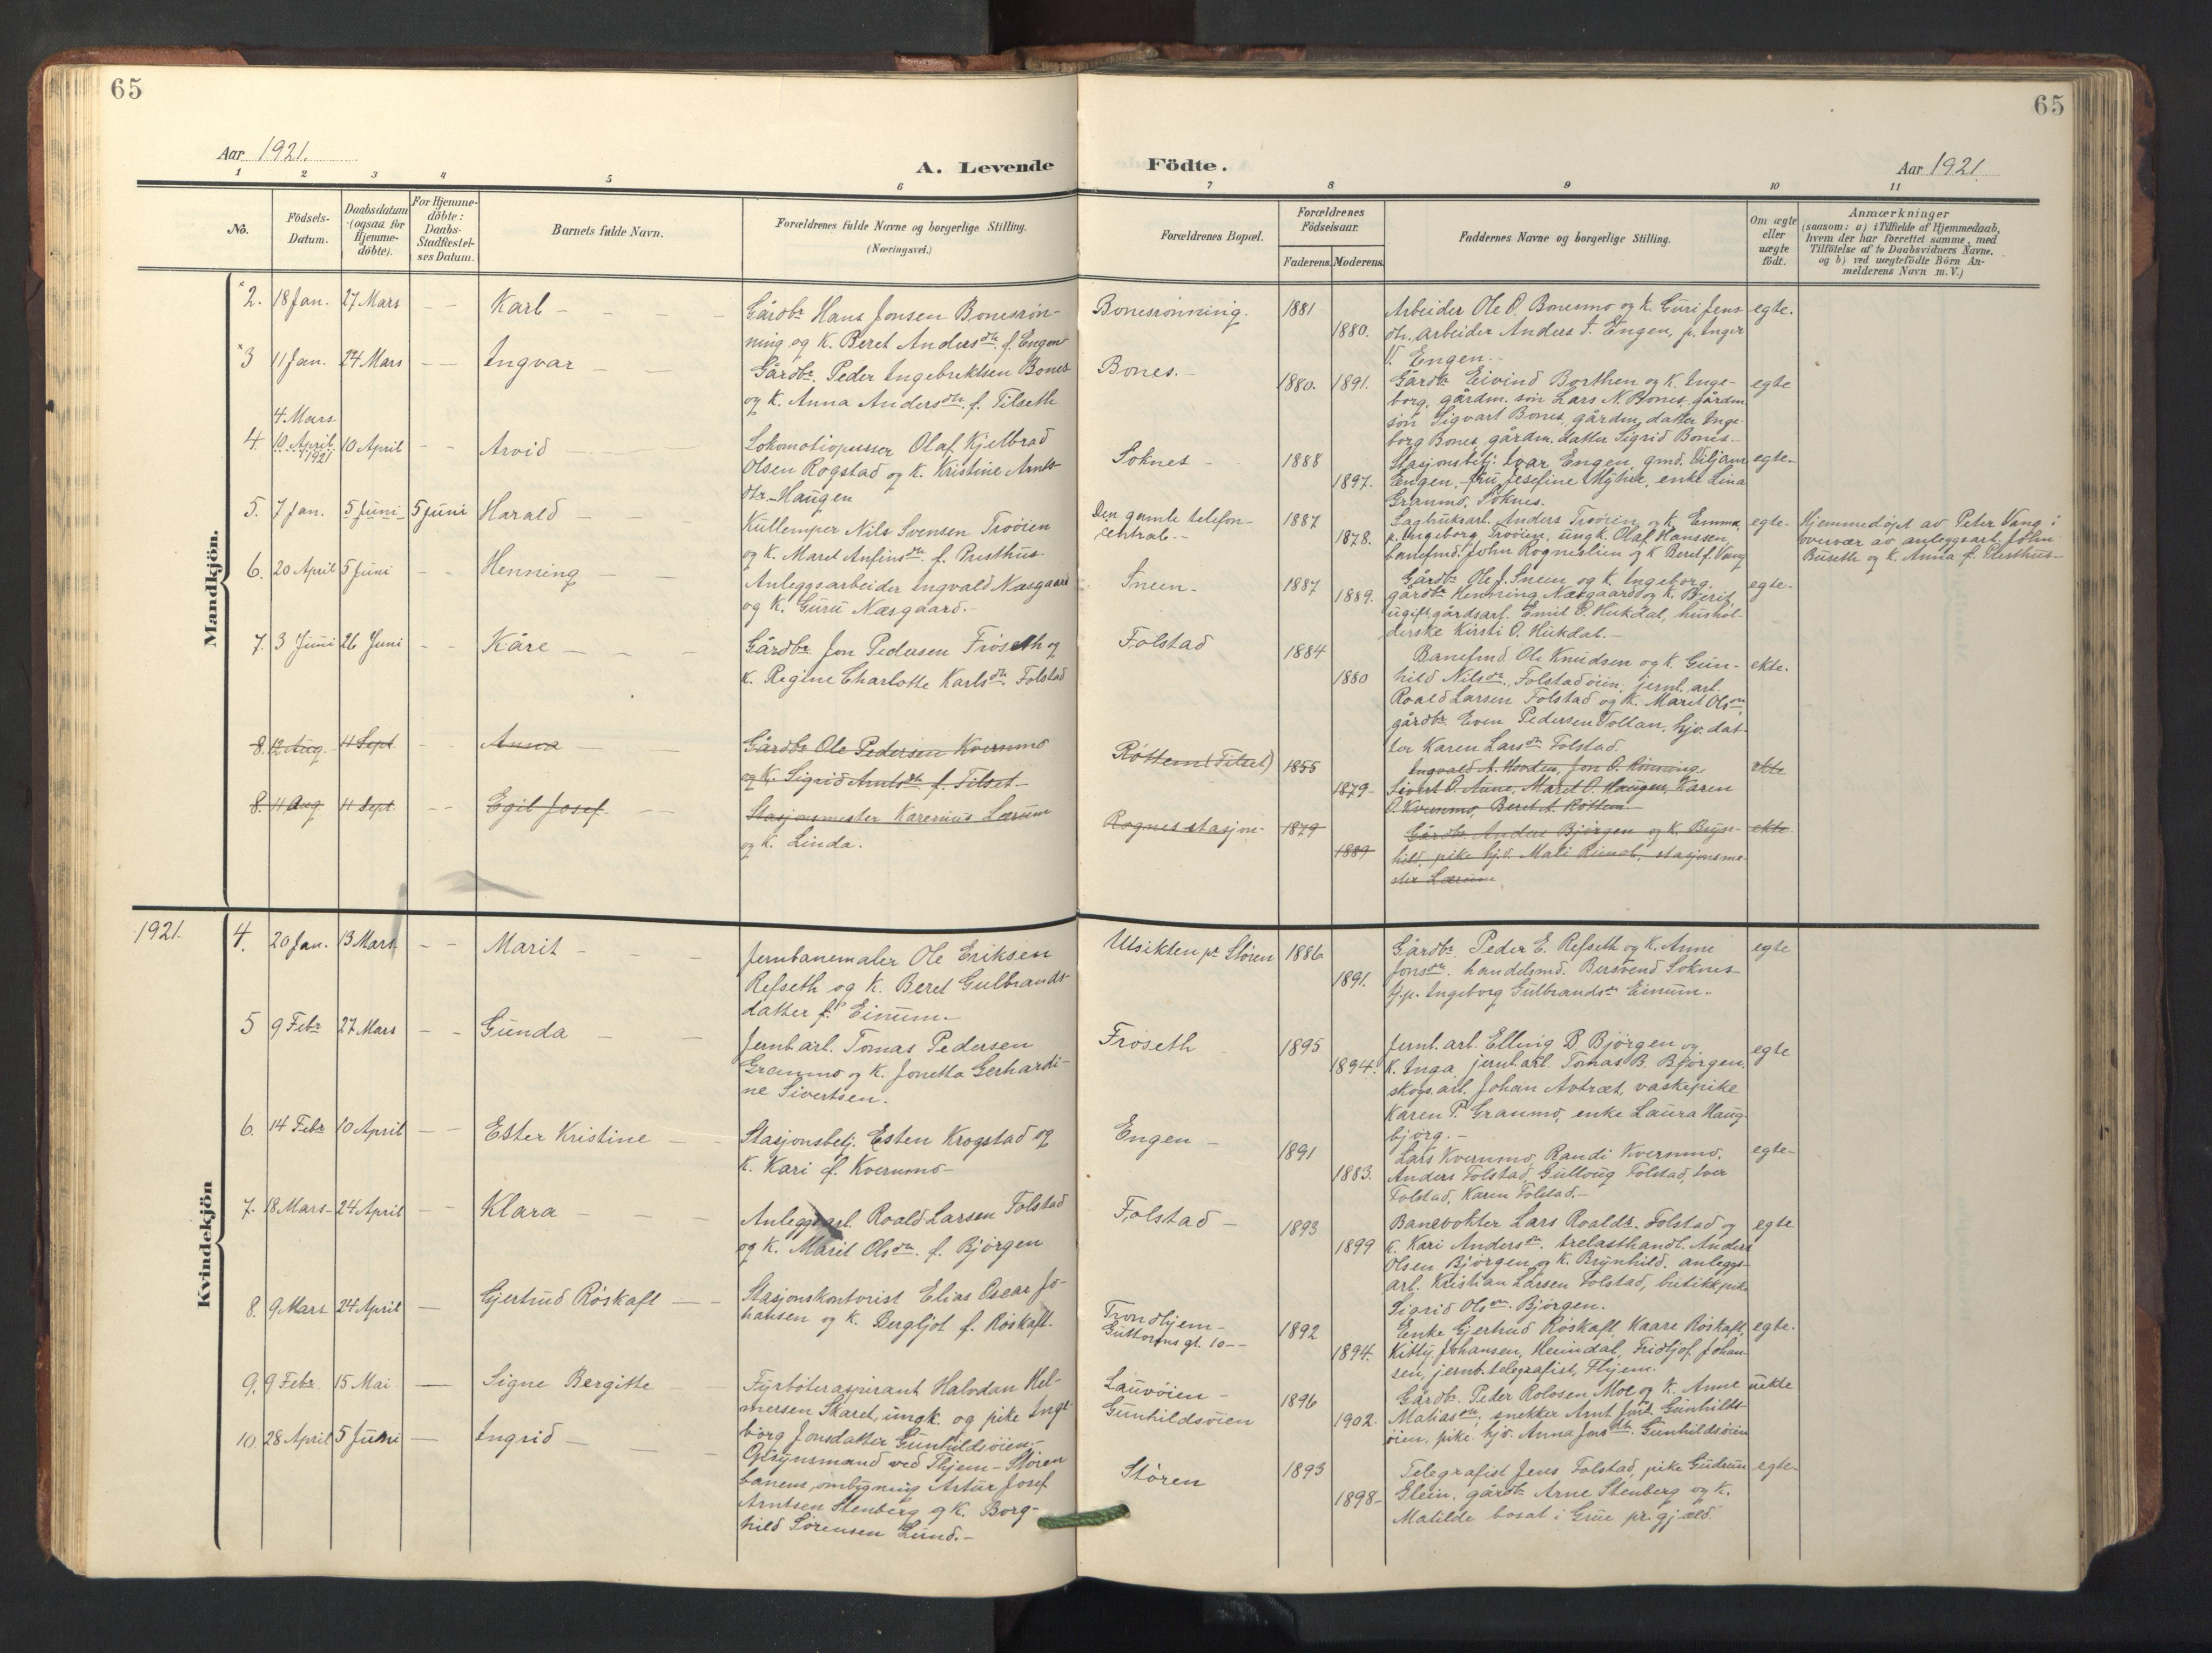 65
65
Aar 1921.
A. Levende
Födte.
Aar 1921
1 2 3 4 5 6 7 8 9 10 11
No.
Födsels-
Datum.
Daabsdatum
(ogsaa for
Hjemme-
döbte).
For Hjemme-
döbte:
Daabs-
Stadfæstel-
ses Datum.
Barnets fulde Navn.
Forældrenes fulde Navne og borgerlige Stilling.
(Næringsvei.)
Forældrenes Bopæl.
Forældrenes
Födselsaar.
Faderens. Moderens.
Faddernes Navne og borgerlige Stilling.
Om ægte
eller
uægte
födt.
Anmærkninger
(saasom: a) i Tilfælde af Hjemmedaab,
hvem der har forrettet samme, med
Tilföielse af to Daabsvidners Navne,
og b) ved uægtefödte Börn An-
melderens Navn m. V.)
Mandkjön.
2. 18 Jan. 27 Mars Karl
Gårdbr Hans Jonsen Bonesrøn-
ning og K. Beret Andersdtr. f. Engen
Bonesrønning.
1881
1880.
Arbeider Ole O. Bonenmo og K. Guri Jens-
dtr. arbeider Anders T. Engen, p. Inger
T. Engen.
egte.
3 11 Jan. 24 Mars Ingvar
Gårdbr. Peder Ingebrektsen Bones
og K. Anna Andersdtr. f. Tilseth
Bones.
1880. 1891.
Gårdbr. Eivind Borthen og K. Inge-
borg, gårdm. søn Lars N. Bones, gårdm.
søn Sigvart Bones, gårdm. datter Inge-
borg Bones, gårdm. datter Sigrid Bones.
egte
4 Mars
4. 10 April 1921 10 April Arvid
Lokomotivpusser Olaf Kjelbrad
Olsen Rogstad og K. Kristine Arnts-
dtr. Haugen
Soknes
1888
1897.
Stasjonsbetj. Ivar Engen, gmd. Viljam
Engen, fru Josefine Myhre, enke Lina
Granmo, Soknes.
egte.
5. 7 Jan. 5 Juni 5 Juni Harald
Kullemper Nils Svensen Trøien
og K. Maret Anfinsdtr. f. Presthus.
Den gamle telefon-
central.
1887
1878.
Sagbruksarb. Anders Trøien og K. Emma,
p. Ingeborg Trøien, ungk. Olaf Hanssen,
banefmd. John Rogneslien og K. Beret f. Vang
egte.
Hjemmedøpt av Peter Vang i
overvær av anleggsarb. John
Buseth og K. Anna f. Presthus.
6. 20 April 5 Juni Henning
Anleggsarbeider Ingvald Næsgaard
og K. Guru Næsgaard.
Sneen.
1887
1889.
Gårdbr. Ole J. Sneen og K. Ingeborg,
gårdbr. Henning Næsgaard og K. Berit,
ugift gårdsarb. Emil P. Hukdal, hushol-
derske Kirsti O. Hukdal.
egte.
7. 3 Juni 26 Juni Kåre
Gårdbr. Jon Pedersen Frøseth og
K. Regine Charlotte Karlsdtr. Folstad
Folstad
1884
1880
Banefmd. Ole Knudsen og K. Gun-
hild Nilsdtr. Folstadøien, jernb. arb.
Roald Larsen Folstad og K. Marit Olsdtr,
gårdbr. Even Pedersen Vollan, hjv. dat-
ter Karen Larsdtr Folstad.
ekte.
8. 12 Aug. 11 Sept. Anna
Gårdbr Ole Pedersen Kvernmo
og K. Sigrid Arntsdtr. f. Tilset.
Røttem (Tilset)
1855
1879
Ingvald A. Hovden, Jon O. Rønning,
Sivert O. Aune, Maret O. Haugen, Karen
O. Kvernmo, Beret A. Røttem.
ekte
8. 11 Aug 11 Sept. Egil Josef.
Stasjonsmester Karenius Lærum
og K. Linda.
Rognes stasjon.
1879
1889
Gårdbr. Anders Bjørgen og K. Bryn-
hild, pike hjv. Mali, stasjonsme-
ster Lærum
ekte
1921.
Kvindekjön
4. 20 Jan. 13 Mars Marit
Jernbanemaler Ole Eriksen
Refseth og K. Beret Gulbrands-
datter f. Einum.
Utsikten pr Støren
1886
1891.
Gårdbr. Peder E. Refseth og K. Anne
Jonsdtr. handelsmd. Bersvend Soknes
Ingeborg Gulbrandsdtr Einum.
egte
5 9 Febr 27 Mars Gunda
Jernb.arb. Tomas Pedersen
Granmo og K. Jonetta Gerhardi-
ne Sivertsen.
Frøseth
1895
1894.
Jernb. arb. Elling B. Bjørgen og
K. Inga, jernb.arb. Tomas B. Bjørgen,
skogs.arb. Johan Avtræt, vaskepike
Karen P. Granmo, enke Laura Haug-
bjørg.
egte
6. 14 Febr 10 April Ester Kristine
Stasjonsbetj. Esten Krogstad og
K. Kari f. Kvernmo
Engen
1891
1883.
Lars Kvernmo, Randi Kvernmo,
Anders Folstad, Gullaug Folstad, Iver
Folstad, Karen Folstad.
egte
7. 18 Mars 24 April Klara
Anleggsarb. Roald Larsen Folstad
og K. Marit Olsdtr. f. Bjørgen
Folstad
1893
1899
Banevokter Lars Roaldr. Folstad og
K. Kari Andersdtr. trelasthandl. Anders
Olsen Bjørgen og K. Brynhild, anleggs-
arb. Kristian Larsen Folstad, butikkpike
Sigrid Olsdtr. Bjørgen.
egte
8. 9 Mars 24 April Gjertrud Røskaft
Stasjonskontorist Elias Oscar Jo-
hansen og K. Bergljot f. Røskaft.
Trondhjem
Guttorms gt. 10
1892
1894.
Enke Gjertrud Røskaft, Kaare Røskaft,
Kitty Johansen, Heimdal, Fridtjof Johan-
sen, jernb.telegrafist, Thjem.
egte.
9. 9 Febr. 15 Mai Signe Bergitte
Fyrbøteraspirant Halvdan Hel-
mersen Skaret, ungk. og pike Inge-
borg Jonsdatter Gunhildsøien.
Lauvøien
Gunhildsøien
1896
1902.
Gårdbr. Peder Rolosen Moe og K. Anne
Matiasdtr; snekker Arnt Jons. Gunhilds-
øien, pike hjv. Anna Jonsdtr. Gunhildsøien
uekte
10. 28 April 5 Juni Ingrid
Opsynsmand ved Thjem-Støren
banens ombygning Artur Josef
Arntsen Stenberg og K. Borg-
hild Sørensen Lund.
Støren
1893
1898
Telegrafist Jens Folstad, pike Gudrun
Glein, gårdbr Arne Stenberg og K.
Matilde bosat i Grue pr.gjæld.
egte